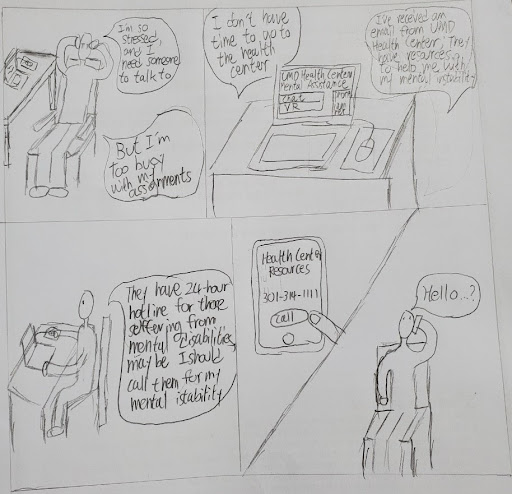 I'm so
stressed,
and I
need someone
to talk to
But I'm
too busy
with my
assignments
I don't have
time to go to
the health
center
UMD Health Center
Mental Assistance
Chat
VR
I've received an
email from UMD
Health Center; They
have resources
to help me with
my mental istability
They have 24-hour
hotline for those
seffering from
mental disabilities,
may be I should
call them for my
mental istability
Health Center
Resources
301-314-1111
call
Hello...?